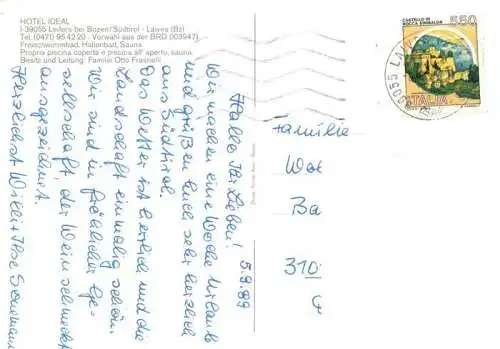 HOTEL IDEAL
I-39055 Leifers bei Bozen/Südtirol - Laives (Bz)
Tel. (0471) 95 42 20 · Vorwahl aus der BRD 003947)
Freischwimmbad, Hallenbad, Sauna
Propria piscina coperta e piscina all'aperto, sauna
Besitz und Leitung: Familie Otto Frasnelli
CASTELLO DI
ROCCA SINIBALDA
550
ITALIA
39055 LA
5.9.89
Hallo Ihr Lieben!
Wir machen eine Woche Urlaub
und grüßen Euch sehr herzlich
aus Südtirol.
Das Wetter ist herrlich und die
Landschaft einmalig schön.
Wir sind in fröhlicher Ge-
sellschaft der Wein schmeckt
ausgezeichnet.
Herzlichst Willi + Ilse
Familie
Wo
Ba
310